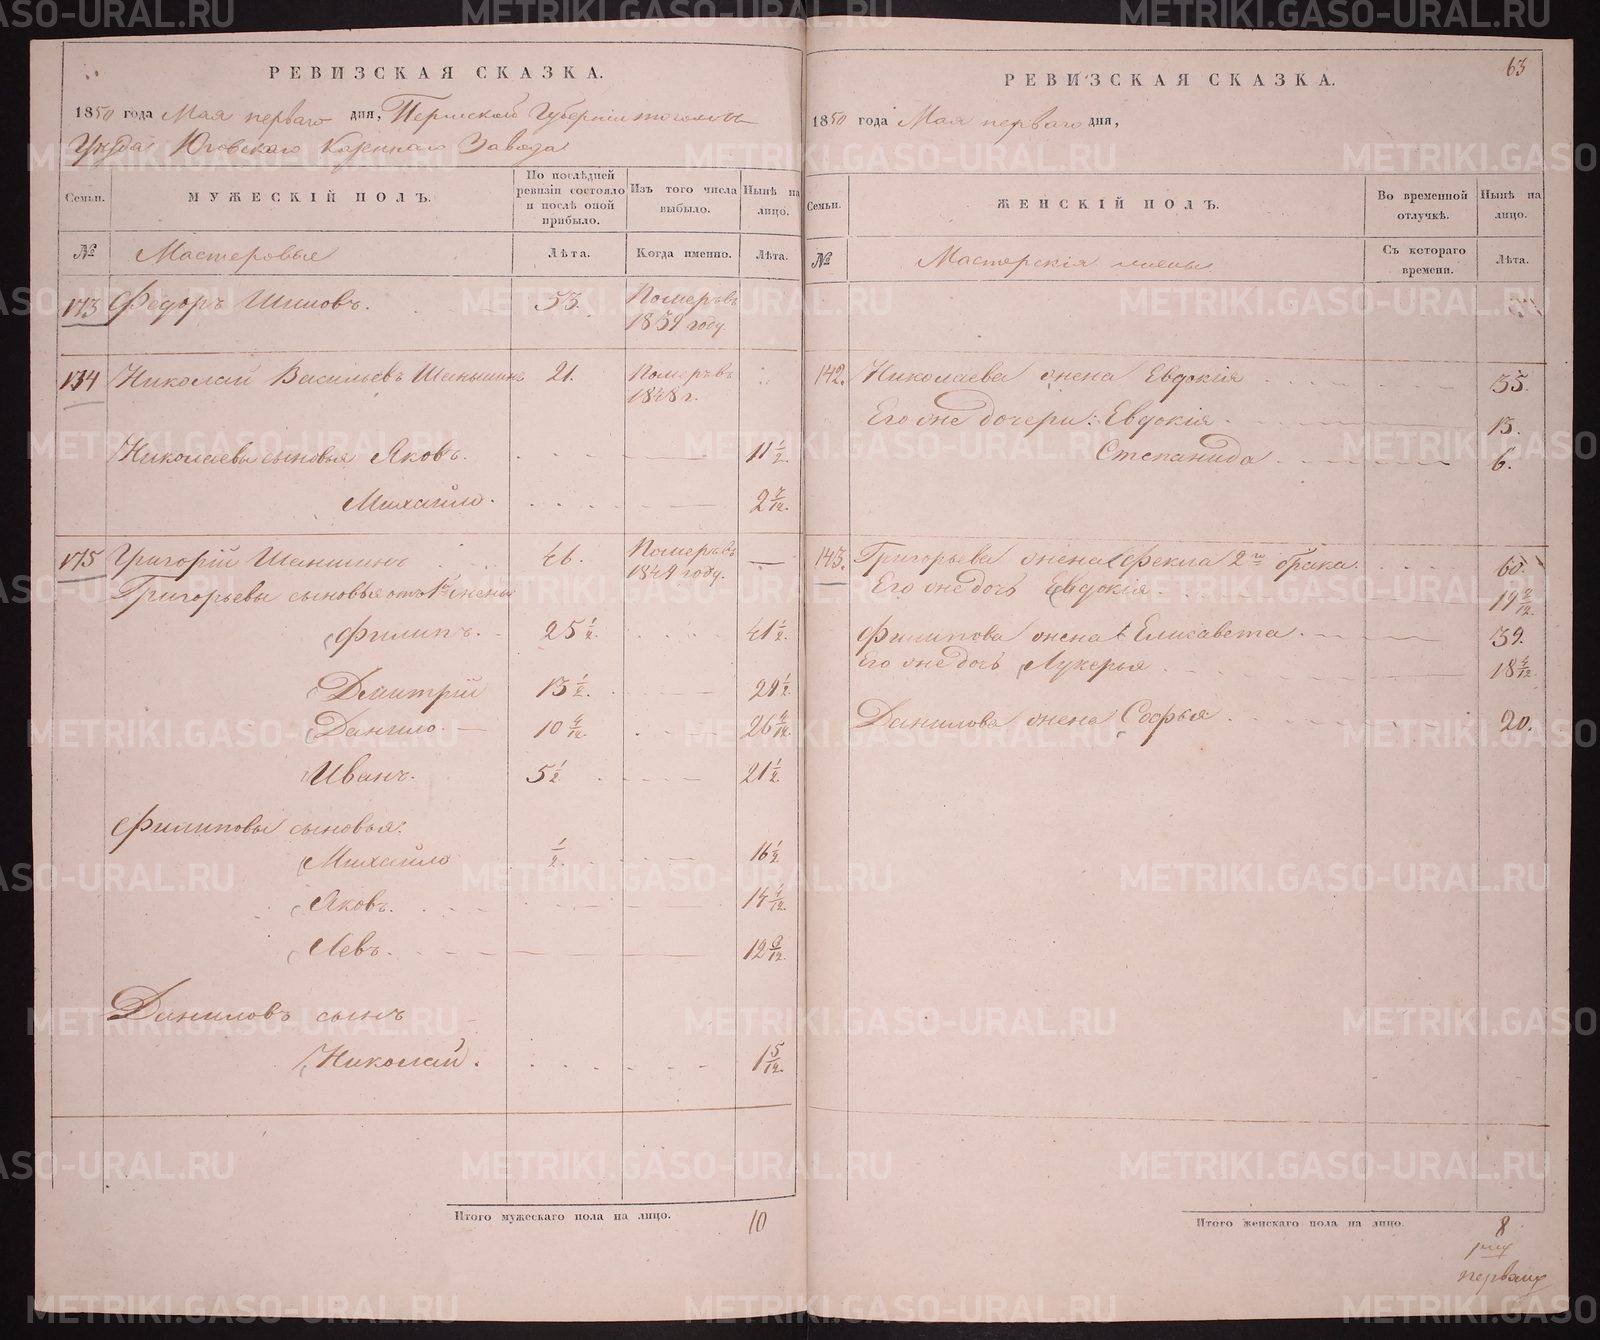 РЕВИЗСКАЯ СКАЗКА.
1850 года Мая перваго дня, Пермской Губерніи тогожъ
Уезда Юговскаго Казеннаго Завода
Семьи. МУЖЕСКІЙ ПОЛЪ. По послѣдней ревизіи состояло и послѣ оной прибыло. Изъ того числа выбыло. Нынѣ на лицо.
№ Мастеровые Лѣта. Когда именно. Лѣта.
173 Федоръ Шиловъ. 53. Померъ въ
1839 году.
174 Николай Васильевъ Шаньшинъ 21. Померъ въ
1848 г.
Николаевы сыновья Яковъ. 11 1/2.
Михайло. 2 7/12.
175 Григорій Шаньшинъ 46. Померъ въ —
1849 году.
Григорьевы сыновья отъ 1й жены
Филипъ. 25 1/2. 41 1/2.
Дмитрій 13 1/2. 29 1/2.
Данило. 10 4/12. 26 4/12.
Иванъ. 5 1/2. 21 1/2.
Филиповы сыновья:
Михайло 1/2. 16 1/2.
Яковъ. 14 4/12.
Левъ. 12 9/12.
Даниловъ сынъ
Николай. 1 5/12.
Итого мужескаго пола на лицо. 10
63
РЕВИЗСКАЯ СКАЗКА.
1850 года Мая перваго дня,
Семьи. ЖЕНСКІЙ ПОЛЪ. Во временной отлучкѣ. Нынѣ на лицо.
№ Мастерскія жены Съ котораго времени. Лѣта.
142. Николаева жена Евдокія 35.
Его же дочери: Евдокія 13.
Степанида 6.
143. Григорьева жена Фекла 2го брака. 60
Его же дочь Евдокія 19 2/12.
Филипова жена Елисавета 39.
Его же дочь Лукерья 18 4/12
Данилова жена Софья 20.
Итого женскаго пола на лицо. 8
METRIKI.GASO-URAL.RU